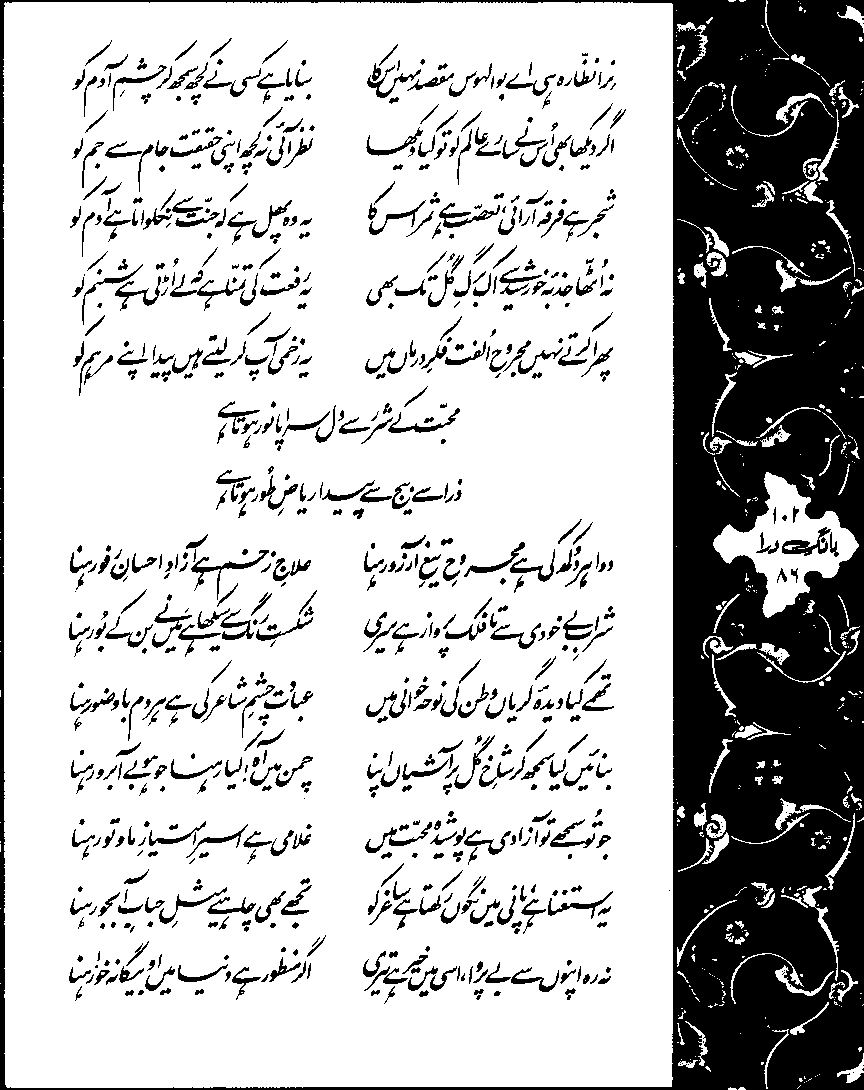 نرا نظّارہ ہی اے بوالہوس مقصد نہیں اس کا بنایا ہے کسی نے کچھ سمجھ کر چشمِ آدم کو
اگر دیکھا بھی اُس نے سارے عالم کو تو کیا دیکھا نظر آئی نہ کچھ اپنی حقیقت جام سے جم کو
شجر ہے فرقہ آرائی، تعصّب ہے ثمر اس کا یہ وہ پھل ہے کہ جنّت سے نِکلواتا ہے آدم کو
نہ اُٹھّا جذبۂ خورشید سے اک برگِ گُل تک بھی یہ رفعت کی تمنّا ہے کہ لے اُڑتی ہے شبنم کو
پھرا کرتے نہیں مجروحِ اُلفت فکرِ درماں میں یہ زخمی آپ کر لیتے ہیں پیدا اپنے مرہم کو
محبّت کے شرر سے دل سراپا نور ہوتا ہے
ذرا سے بیج سے پیدا ریاضِ طُور ہوتا ہے
دوا ہر دُکھ کی ہے مجروحِ تیغِ آرزو رہنا علاجِ زخم ہے آزادِ احسانِ رفو رہنا
شرابِ بے خودی سے تا فلک پرواز ہے میری شکستِ رنگ سے سیکھا ہے مَیں نے بن کے بُو رہنا
تھمے کیا دیدۂ گریاں وطن کی نوحہ خوانی میں عبادت چشمِ شاعر کی ہے ہر دم باوضو رہنا
بنائیں کیا سمجھ کر شاخِ گُل پر آشیاں اپنا چمن میں آہ! کیا رہنا جو ہو بے آبرو رہنا
جو تُو سمجھے تو آزادی ہے پوشیدہ محبّت میں غلامی ہے اسیرِ امتیازِ ماوتو رہنا
یہ استغنا ہے، پانی میں نگوں رکھتا ہے ساغر کو تجھے بھی چاہیے مثلِ حبابِ آبجو رہنا
نہ رہ اپنوں سے بے پروا، اسی میں خیر ہے تیری اگر منظور ہے دنیا میں او بیگانہ خو! رہنا
۱۰۲
بانگِ درا
۸۶